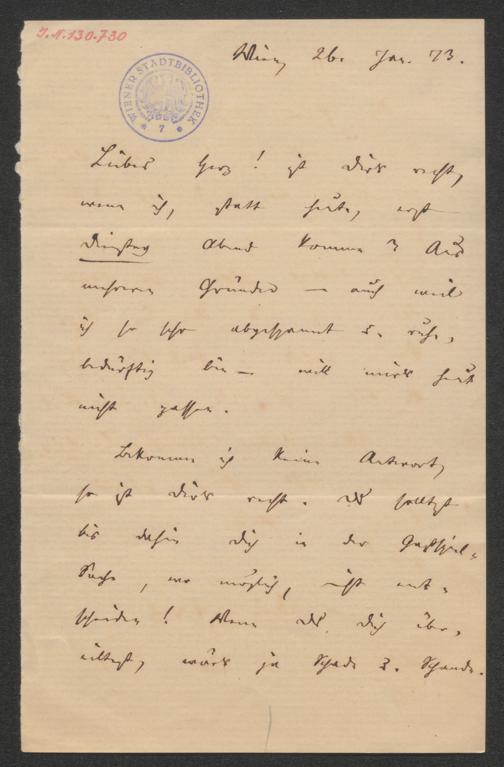 I.N. 130.730
WIENER STADTBIBLIOTHEK
7
Wien, 26. Jan. 73.
Liebes Herz! ist Dir's recht,
wenn ich, statt heute, erst
Dienstag Abend komme? Aus
mehreren Gründen – auch weil
ich so sehr abgespannt u. ruhe-
bedürftig bin – will mir's heut
nicht passen.
Bekomme ich keine Antwort,
so ist Dir's recht. Du solltest
bis dahin Dich in der Gastspiel-
Sache, wo möglich, nicht ent-
scheiden! Wenn Du Dich über-
eiltest, wär's ja Schade u. Schande.